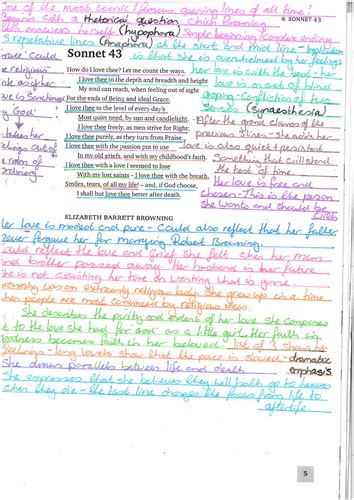 One of the most iconic / famous opening lines of all time!
Begins with a rhetorical question which Browning
then answers herself (hypophora) Simple beginning, Complex ending
SONNET 43
5 repetative lines (Anaphora) at the start and mid line - implication
is that she is overwhelmed by her feelings
Sonnet 43
How do I love thee? Let me count the ways.
I love thee to the depth and breadth and height
My soul can reach, when feeling out of sight
For the ends of Being and ideal Grace.
I love thee to the level of every day's
Most quiet need, by sun and candlelight.
I love thee freely, as men strive for Right;
I love thee purely, as they turn from Praise.
I love thee with the passion put to use
In my old griefs, and with my childhood's faith.
I love thee with a love I seemed to lose
With my lost saints – I love thee with the breath,
Smiles, tears, of all my life! – and, if God choose,
I shall but love thee better after death.
her love is with the soul - her
love is an act of blind
Confliction of two
senses (Synaesthesia)
After the grand claims of the
previous lines - she adds her
love is also quiet + persistent
Something that will stand
the test of time.
Her love is free and
chosen - This is the person
she wants and should be
with
ELIZABETH BARRETT BROWNING
Her love is modest and pure - Could also reflect that her father
never forgave her for marrying Robert Browning.
Could reflect the love and grief she felt when her Mum
and brother passed away. Her husband is her future
she is not wasting her time on wanting what is gone.
Browning was an extremely religious lady. She grew up in a time
when people are most convinced by religious ideas.
She describes the purity and extent of her love. She compares
it to the love she had for God as a little girl. Her faith in
goodness becomes faith in her beloved. list of 3 shows her
feelings - long vowels show that the pace is slowed - dramatic
emphasis.
She draws parallels between life and death
She expresses that she believes they will both go to heaven
when they die - the last line changes the focus from life to
afterlife.
5